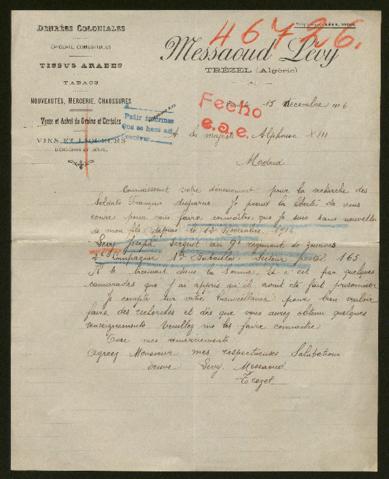 DENRÉES COLONIALES
TISSUS ARABES
TABACS
NOUVEAUTÉS, MERCERIE, CHAUSSURES
Vente et Achat de Grains et Céréales
VINS ET LIQUEURS
46726.
Messaoud Lévy
TRÉZEL (Algérie)
Fecho
e.a.e.
Pedir informes
que se hará así
15 Décembre 1916
A sa majesté Alphonse XIII
Madrid
Connaissant votre dévouement pour la recherche des
Soldats Français disparus. Je prends la liberté de vous
écrire pour vous faire connaître que je suis sans nouvelles
de mon fils depuis le Novembre 1916
Levy Joseph Sergent au 9e régiment de Zouaves
Compagnie 1er Bataillon Secteur postal 165.
Il se trouvait dans la Somme et c'est par quelques
camarades que j'ai appris qu'il avait été fait prisonnier
Je compte sur votre bienveillance pour bien vouloir
faire des recherches et dès que vous aurez obtenu quelques
renseignements veuillez me les faire connaître
Avec mes remerciements
Agréez Monsieur mes respectueuses Salutations
Levy Messaoud
Trézel